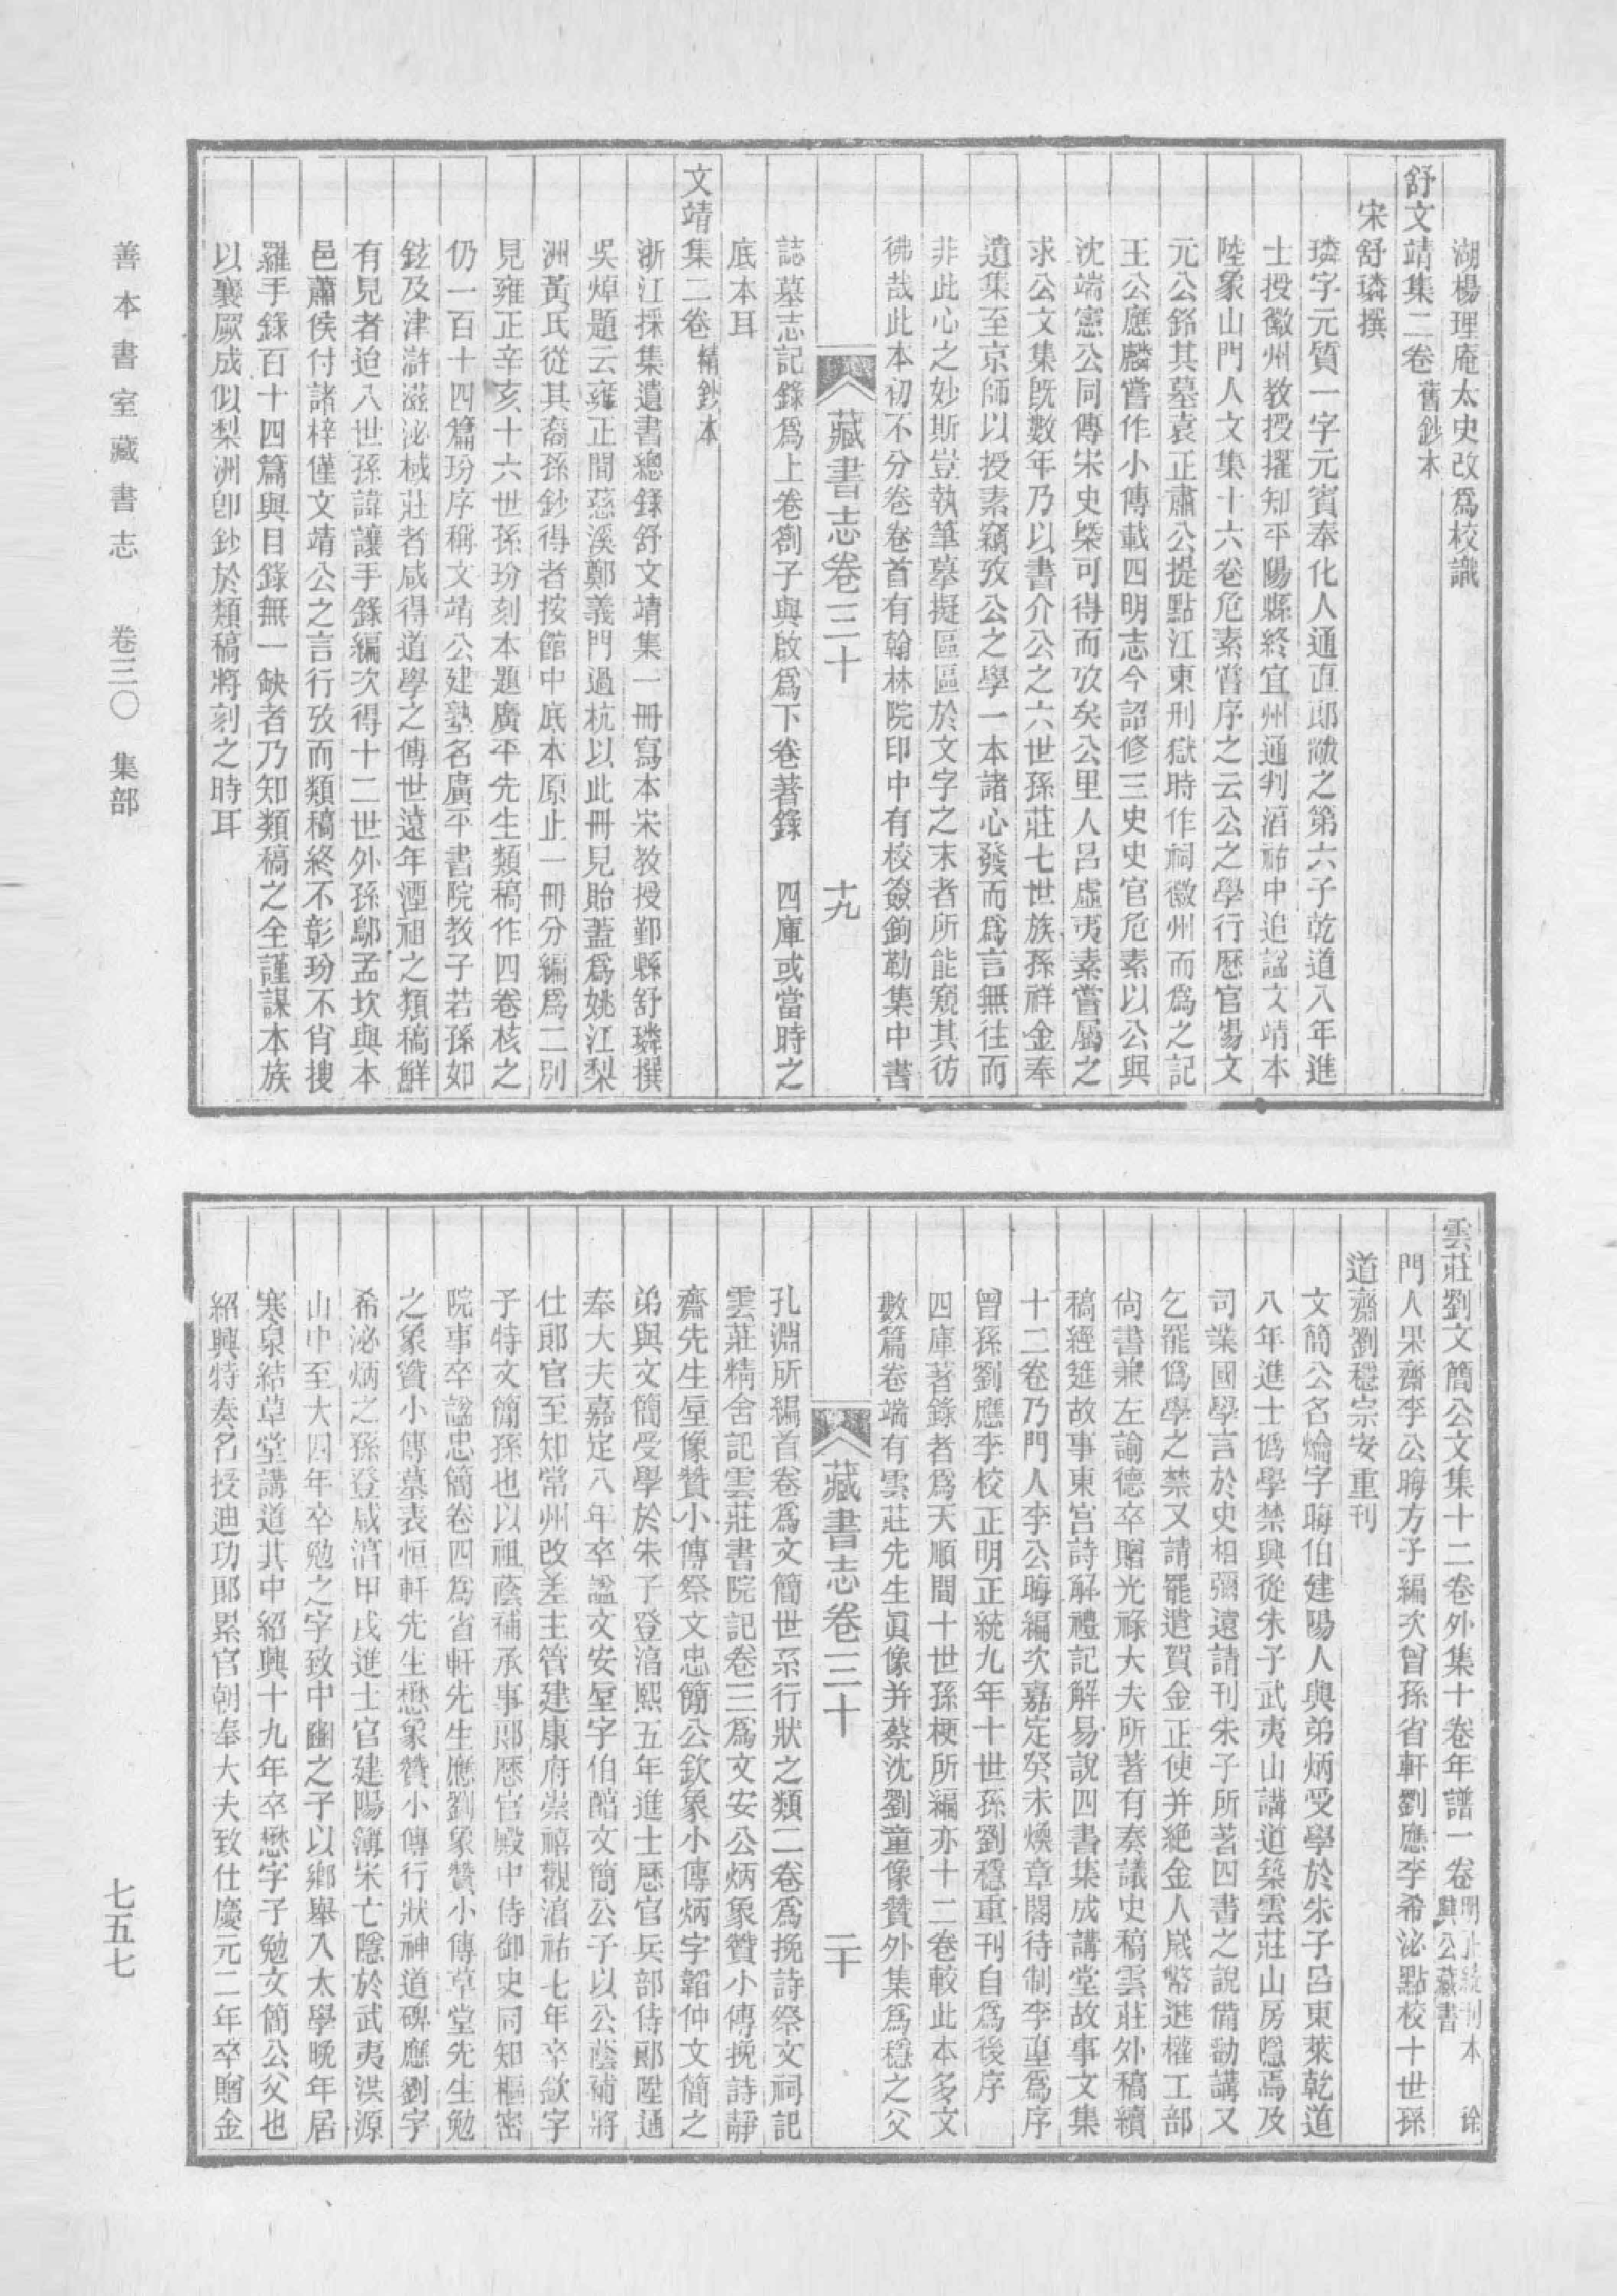 湖楊理庵太史改爲校識
舒文靖集二卷舊鈔本
宋舒璘撰
璘字元質一字元賓奉化人通直郎黻之第六子乾道八年進
士授徽州教授擢知平陽縣終宜州通判淳祐中追諡文靖本
陸象山門人文集十六卷危素嘗序之云公之學行歷官楊文
元公銘其墓袁正肅公提點江東刑獄時作祠徽州而爲之記
王公應麟嘗作小傳載四明志今詔修三史史官危素以公與
沈端憲公同傳宋史槩可得而攷矣公里人呂虛夷素嘗屬之
求公文集旣數年乃以書介公之六世孫莊七世族孫祥金奉
遺集至京師以授素竊攷公之學一本諸心發而爲言無往而
非此心之妙斯豈執筆摹擬區區於文字之末者所能窺其彷
彿哉此本初不分卷卷首有翰林院印中有校簽鉤勒集中書
藏書志卷三十 十九
誌墓志記錄爲上卷劄子與啟爲下卷著錄 四庫或當時之
底本耳
文靖集二卷精鈔本
浙江採集遺書總錄舒文靖集一冊寫本宋教授鄞縣舒璘撰
吳焯題云雍正間慈溪鄭義門過杭以此冊見貽蓋爲姚江梨
洲黃氏從其裔孫鈔得者按館中底本原止一冊分編爲二別
見雍正辛亥十六世孫玢刻本題廣平先生類稿作四卷核之
仍一百十四篇玢序稱文靖公建塾名廣平書院教子若孫如
鉉及津滸滋泌棫莊者咸得道學之傳世遠年湮祖之類稿鮮
有見者迨八世孫諱讓手錄編次得十二世外孫鄔孟坎與本
邑蕭侯付諸梓僅文靖公之言行攷而類稿終不彰玢不肖搜
羅手錄百十四篇與目錄無一缺者乃知類稿之全謹謀本族
以襄厥成似梨洲卽鈔於類稿將刻之時耳
雲莊劉文簡公文集十二卷外集十卷年譜一卷明正統刊本 徐興公藏書
門人果齋李公晦方子編次曾孫省軒劉應李希泌點校十世孫
道齋劉穩宗安重刊
文簡公名爚字晦伯建陽人與弟炳受學於朱子呂東萊乾道
八年進士僞學禁興從朱子武夷山講道築雲莊山房隱焉及
司業國學言於史相彌遠請刊朱子所著四書之說備勸講又
乞罷僞學之禁又請罷遣賀金正使并絶金人歲幣進權工部
尙書兼左諭德卒贈光祿大夫所著有奏議史稿雲莊外稿續
稿經筵故事東宮詩解禮記解易說四書集成講堂故事文集
十二卷乃門人李公晦編次嘉定癸未煥章閣待制李𡌴爲序
曾孫劉應李校正明正統九年十世孫劉穩重刊自爲後序
四庫著錄者爲天順間十世孫梗所編亦十二卷較此本多文
數篇卷端有雲莊先生眞像并蔡沈劉童像贊外集爲穩之父
藏書志卷三十 二十
孔淵所編首卷爲文簡世系行狀之類二卷爲挽詩祭文祠記
雲莊精舍記雲莊書院記卷三爲文安公炳象贊小傳挽詩靜
齋先生垕像贊小傳祭文忠簡公欽象小傳炳字韜仲文簡之
弟與文簡受學於朱子登淳熙五年進士歷官兵部侍郞陞通
奉大夫嘉定八年卒諡文安垕字伯醇文簡公子以公蔭補將
仕郞官至知常州改差主管建康府崇禧觀淳祐七年卒欽字
子特文簡孫也以祖蔭補承事郞歷官殿中侍御史同知樞密
院事卒諡忠簡卷四爲省軒先生應劉象贊小傳草堂先生勉
之象贊小傳墓表恒軒先生懋象贊小傳行狀神道碑應劉字
希泌炳之孫登咸淳甲戌進士官建陽簿宋亡隱於武夷洪源
山中至大四年卒勉之字致中齠之子以鄕舉入太學晚年居
寒泉結草堂講道其中紹興十九年卒懋字子勉文簡公父也
紹興特奏名授迪功郞累官朝奉大夫致仕慶元二年卒贈金
善本書室藏書志 卷三〇 集部
七五七